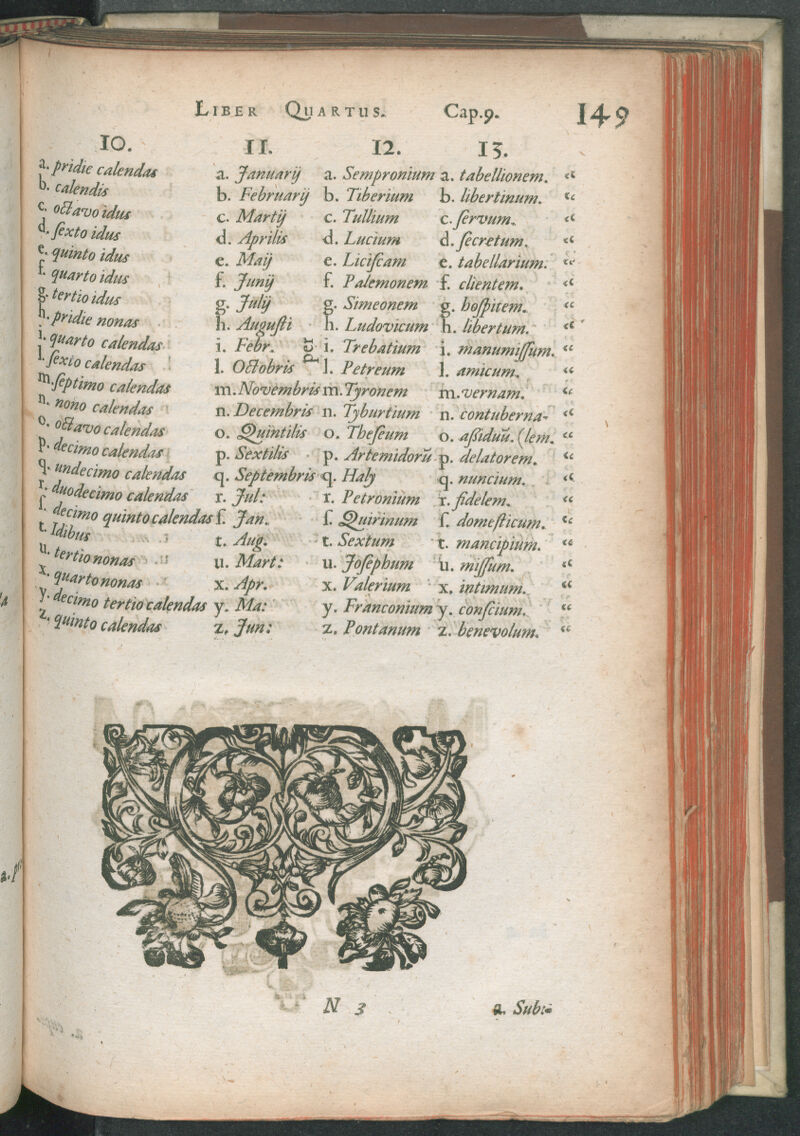 LIBER QUARTUS. Cap.9. 149
10. 11. 12. 13.
a. pridie calendas a. Januarij a. Sempronium a. tabellionem. “
b. calendis b. Februarij b. Tiberium b. libertinum. “
c. octavo idus c. Martij c. Tullium c. ſervum. “
d. ſexto idus d. Aprilis d. Lucium d. ſecretum. “
e. quinto idus e. Maij e. Liciſcam e. tabellarium. “
f. quarto idus f. Junij f. Palemonem f. clientem. “
g. tertio idus g. Julij g. Simeonem g. hoſpitem. “
h. pridie nonas h. Auguſti h. Ludovicum h. libertum. “
i. quarto calendas i. Febr. per i. Trebatium i. manumiſſum. “
l. ſexto calendas l. Octobris l. Petreum l. amicum. “
m. ſeptimo calendas m. Novembris m. Tyronem m. vernam. “
n. nono calendas n. Decembris n. Tyburtium n. contuberna- “
o. octavo calendas o. Quintilis o. Theſeum o. aſsiduũ. (lem. “
p. decimo calendas p. Sextilis p. Artemidorũ p. delatorem. “
q. undecimo calendas q. Septembris q. Haly q. nuncium. “
r. duodecimo calendas r. Jul: r. Petronium r. fidelem. “
ſ. decimo quinto calendas ſ. Jan. ſ. Quirinum ſ. domeſticum. “
t. Idibus t. Aug. t. Sextum t. mancipium. “
u. tertio nonas u. Mart: u. Joſephum u. miſſum. “
x. quarto nonas x. Apr. x. Valerium x. intimum. “
y. decimo tertio calendas y. Ma: y. Franconium y. conſcium. “
z. quinto calendas z. Jun: z. Pontanum z. benevolum. “
N 3 a. Sub:=